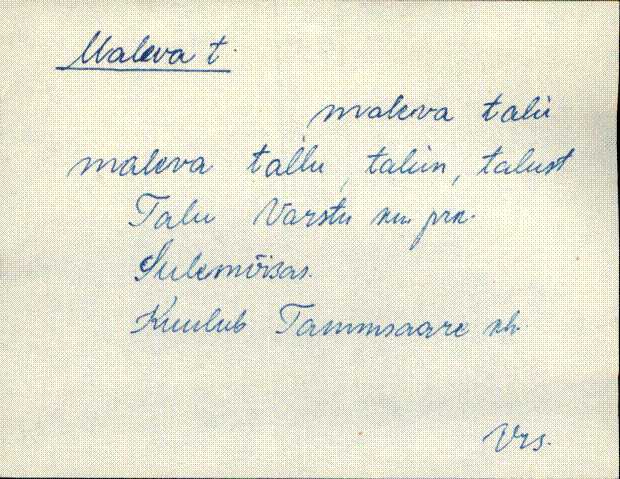 Maleva t.
maleva talu
maleva tallu, talun, talust
Talu Varstu kn. prk.
Sulemõisas.
Kuulub Tammsaare kh.
Vrs.